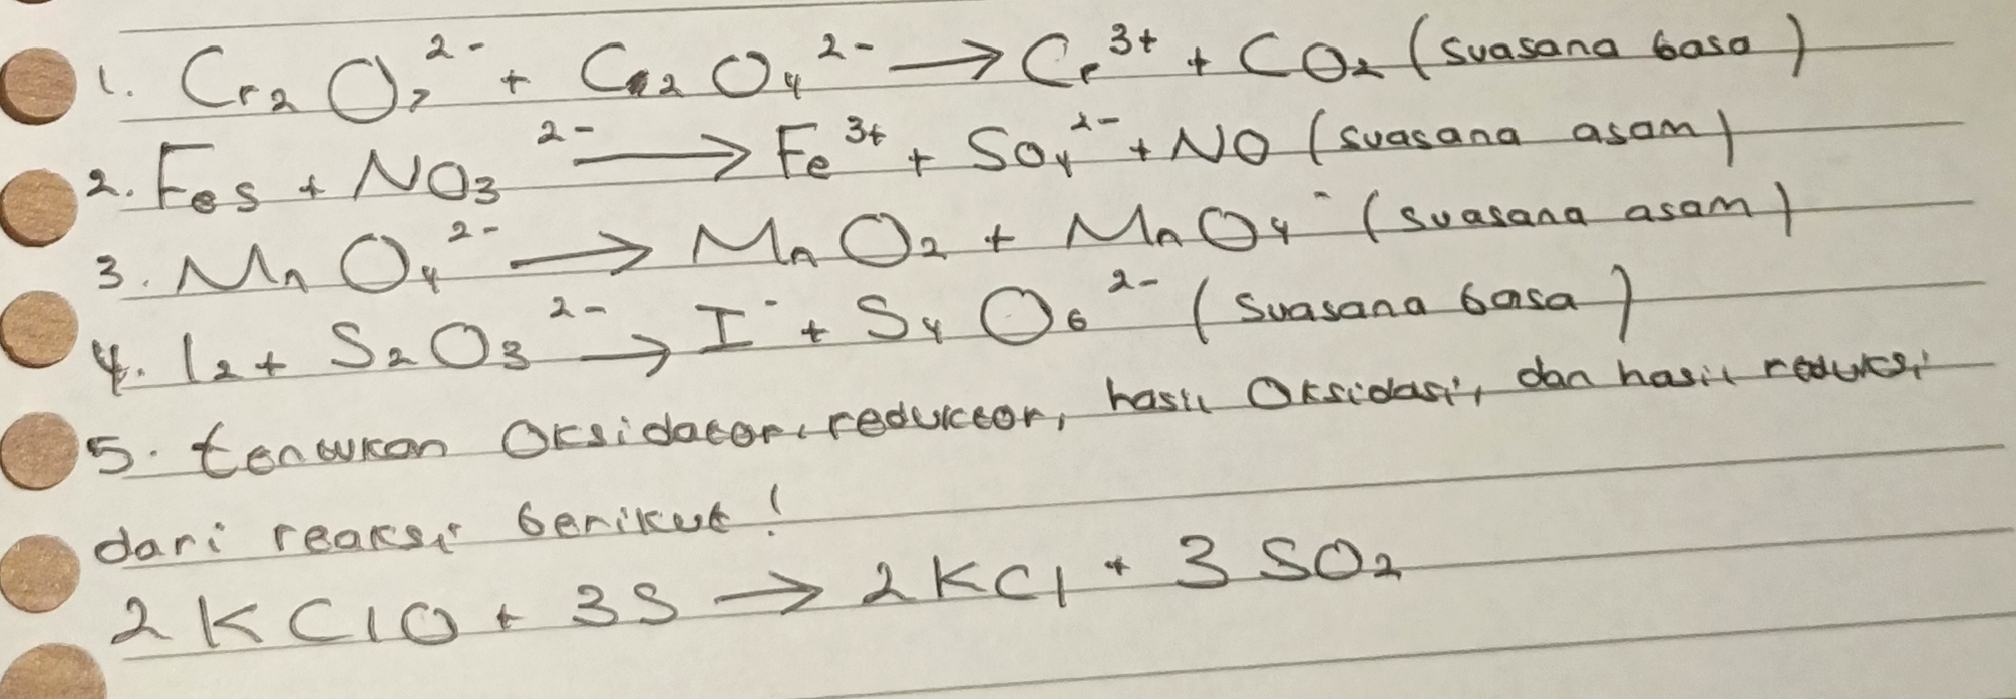 1. Cr₂O₇²⁻ + C₂O₄²⁻ → Cr³⁺ + CO₂ (suasana basa)
2. FeS + NO₃²⁻ → Fe³⁺ + SO₄²⁻ + NO (suasana asam)
3. MnO₄²⁻ → MnO₂ + MnO₄⁻ (suasana asam)
4. I₂ + S₂O₃²⁻ → I⁻ + S₄O₆²⁻ (suasana basa)
5. tentukan Oksidator, reduktor, hasil Oksidasi, dan hasil reduksi
dari reaksi berikut!
2KClO + 3S → 2KCl + 3SO₂